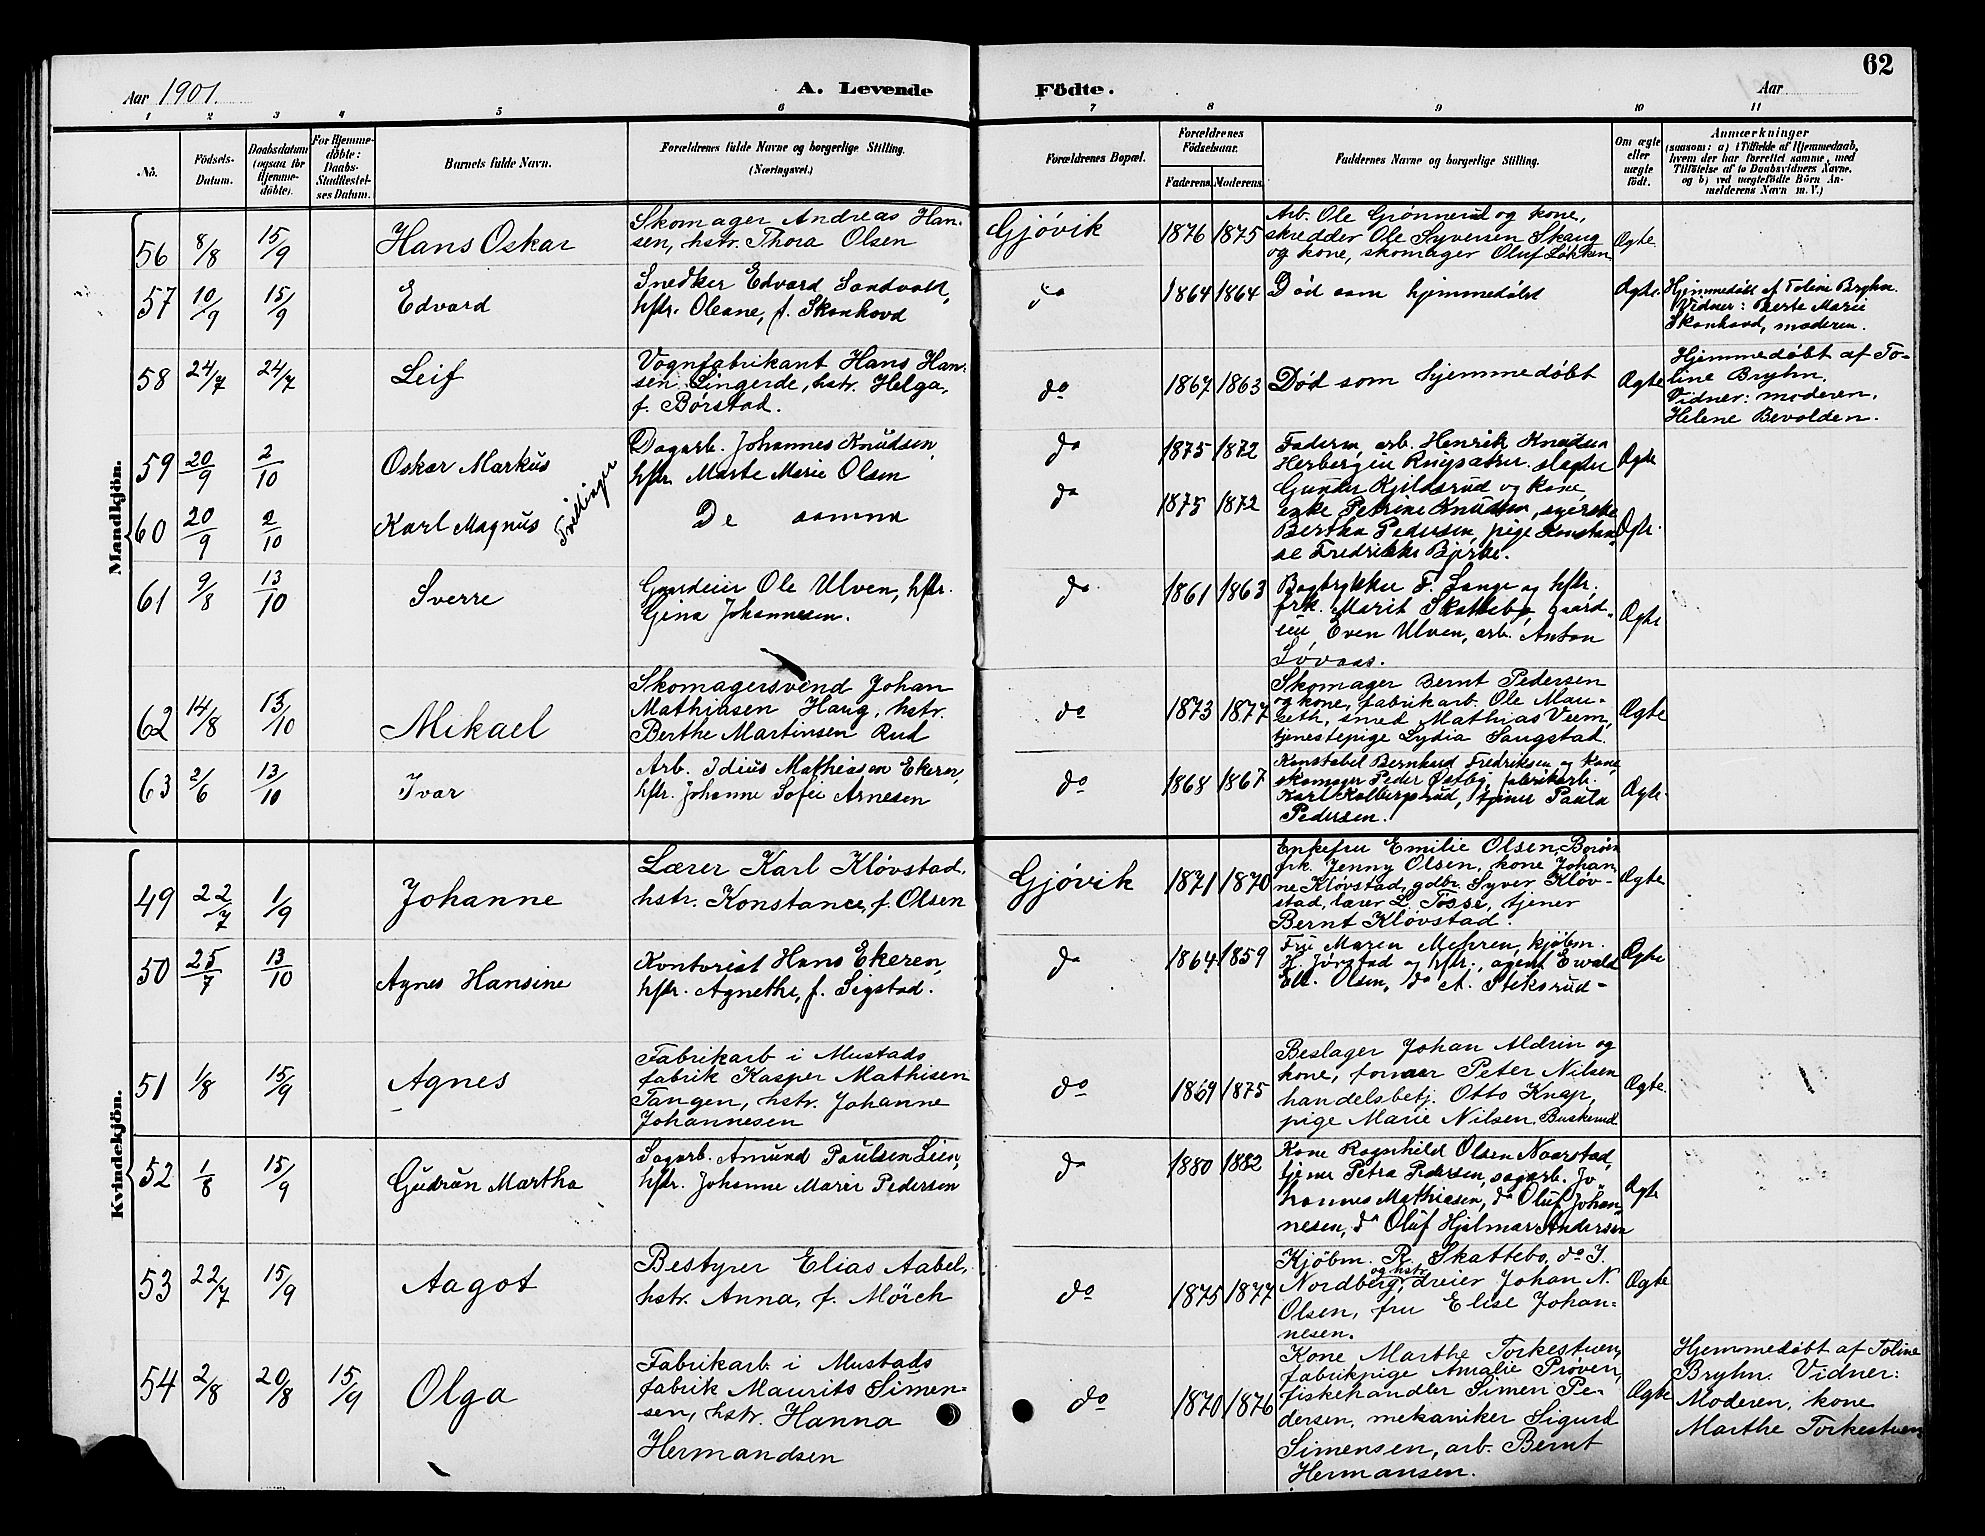 62
Aar 1901.
A. Levende Födte.
Aar
1 2 3 4 5 6 7 8 9 10 11
No.
Födsels-
Datum.
Daabsdatum
(ogsaa for
Hjemme-
döbte).
For Hjemme-
döbte:
Daabs-
Stadfæstel-
ses Datum.
Barnets fulde Navn.
Forældrenes fulde Navne og borgerlige Stilling.
(Næringsvei.)
Forældrenes Bopæl.
Forældrenes
Födselsaar.
Faderens. Moderens.
Faddernes Navne og borgerlige Stilling.
Om ægte
eller
uægte
födt.
Anmærkninger
(saasom: a) i Tilfælde af Hjemmedaab,
hvem der har forrettet samme, med
Tilföielse af to Daabsvidners Navne,
og b) ved uægtefödte Börn An-
melderens Navn m. V.)
Mandkjön.
56 8/8 15/9 Hans Oskar
Skomager Andreas Han-
sen, hstr. Thora Olsen
Gjøvik 1876 1875
Arb. Ole Grønnerud og kone,
skredder Ole Syversen Skaug
og kone, skomager Oluf Løkken
Ægte
57 10/9 15/9 Edvard
Snedker Edvard Sandvold,
hstr. Oleane, f. Skonhovd
do 1864 1864 Død som hjemmedøbt Ægte
Hjemmedøbt af Toline Bryhn
Vidner: Berte Marie
Skonhovd, moderen.
58 24/7 24/7 Leif
Vognfabrikant Hans Han-
sen Lingerde, hstr. Helga,
f. Børstad.
do 1867 1863 Død som hjemmedøbt Ægte
Hjemmedøbt af To-
line Bryhn.
Vidner: moderen,
Helene Bevolden.
59 20/9 2/10 Oskar Markus
Dagarb. Johannes Knudsen,
hstr. Marte Marie Olsen
do 1875 1872
Faderen, arb. Henrik Knudsen
Herbergiu Ringsætrer. slagter
Ægte
Tvillinger
60 20/9 2/10 Karl Magnus
De samme
do 1875 1872
Gunder Kjildsrud og kone,
enke Petrine Knudsen, syerske
Bertha Pedersen, pige Konstan-
se Fredrikke Bjørke.
Ægte
61 9/8 13/10 Sverre
Gaardeier Ole Ulven, hstr.
Gina Johannesen.
do 1861 1863
Bogtrykker F. Lange og hstr.,
frk. Marit Skattebo, gaard-
eier Even Ulven, arb. Anton
Løvaas.
Ægte
62 14/8 13/10 Mikael
Skomagersvend Johan
Mathiasen Haug, hstr.
Berthe Martinsen Rud
do 1873 1877
Skomager Bernt Pedersen
og kone, fabrikarb. Ole Mau-
seth, smed Mathias Veem,
tjenestepige Lydia Saugstad.
Ægte
63 2/6 13/10 Ivar
Arb. Idius Mathiasen Ekeren,
hstr. Johanne Sofie Arnesen
do 1868 1867
Konstabel Bernhard Fredriksen og kone,
skomager Peder Østby, fabrikarb.
Karl Kolbergsrud, tjener Paula
Pedersen.
Ægte
Kvindekjön.
49 22/7 1/9 Johanne
Lærer Karl Kløvstad,
hstr. Konstance, f. Olsen
Gjøvik 1871 1870
Enkefru Emilie Olsen,
frk. Jenny Olsen, kone Johan-
ne Kløvstad, gdbr. Syver Kløv-
stad, lærer L. Fosse, tjener
Bernt Kløvstad.
Ægte
50 25/7 13/10 Agnes Hansine
Kontorist Hans Ekeren,
hstr. Agnethe, f. Sigstad.
do 1864 1859
Fru Maren Mehren, kjøbm.
H. Jørstad og hstr., agent Ewald
Ell. Olsen, do A. Stiksrud
Ægte
51 1/8 15/9 Agnes
Fabrikarb i Mustads
fabrik Kasper Mathisen
Tangen, hstr. Johanne
Johannesen
do 1869 1875
Beslager Johan Aldrin og
kone, former Peter Nilsen
handelsbetj. Otto Knap,
pige Marie Nilsen Buskerud
Ægte
52 1/8 15/9 Gudrun Martha
Sagarb. Amund Paulsen Lien,
hstr. Johanne Marie Pedersen
do 1880 1882
Kone Ragnhild Olsen Naarstad,
tjener Petra Pedersen, sagarb. Jo-
hannes Mathiesen, do Oluf Johan-
nesen, do Oluf Hjelmar Andersen
Ægte
53 22/7 15/9 Aagot
Bestyrer Elias Aabel,
hstr. Anna, f. Mörch
do 1875 1877
Kjøbm. R. Skattebo, do J.
Nordberg og hstr, dreier Johan N.
Olsen, fru Elise Johan-
nesen.
Ægte
54 2/8 20/8 15/9 Olga
Fabrikarb. i Mustads
fabrik Maurits Simen-
sen, hstr. Hanna
Hermandsen
do 1870 1876
Kone Marthe Torkestuen,
fabrikpige Amalie Prøven,
fiskehandler Simen Pe-
dersen, mekaniker Sigurd
Simensen, arb. Bernt
Hermansen.
Ægte
Hjemmedøbt af Toline
Bryhn. Vidner:
Moderen, kone
Marthe Torkestuen